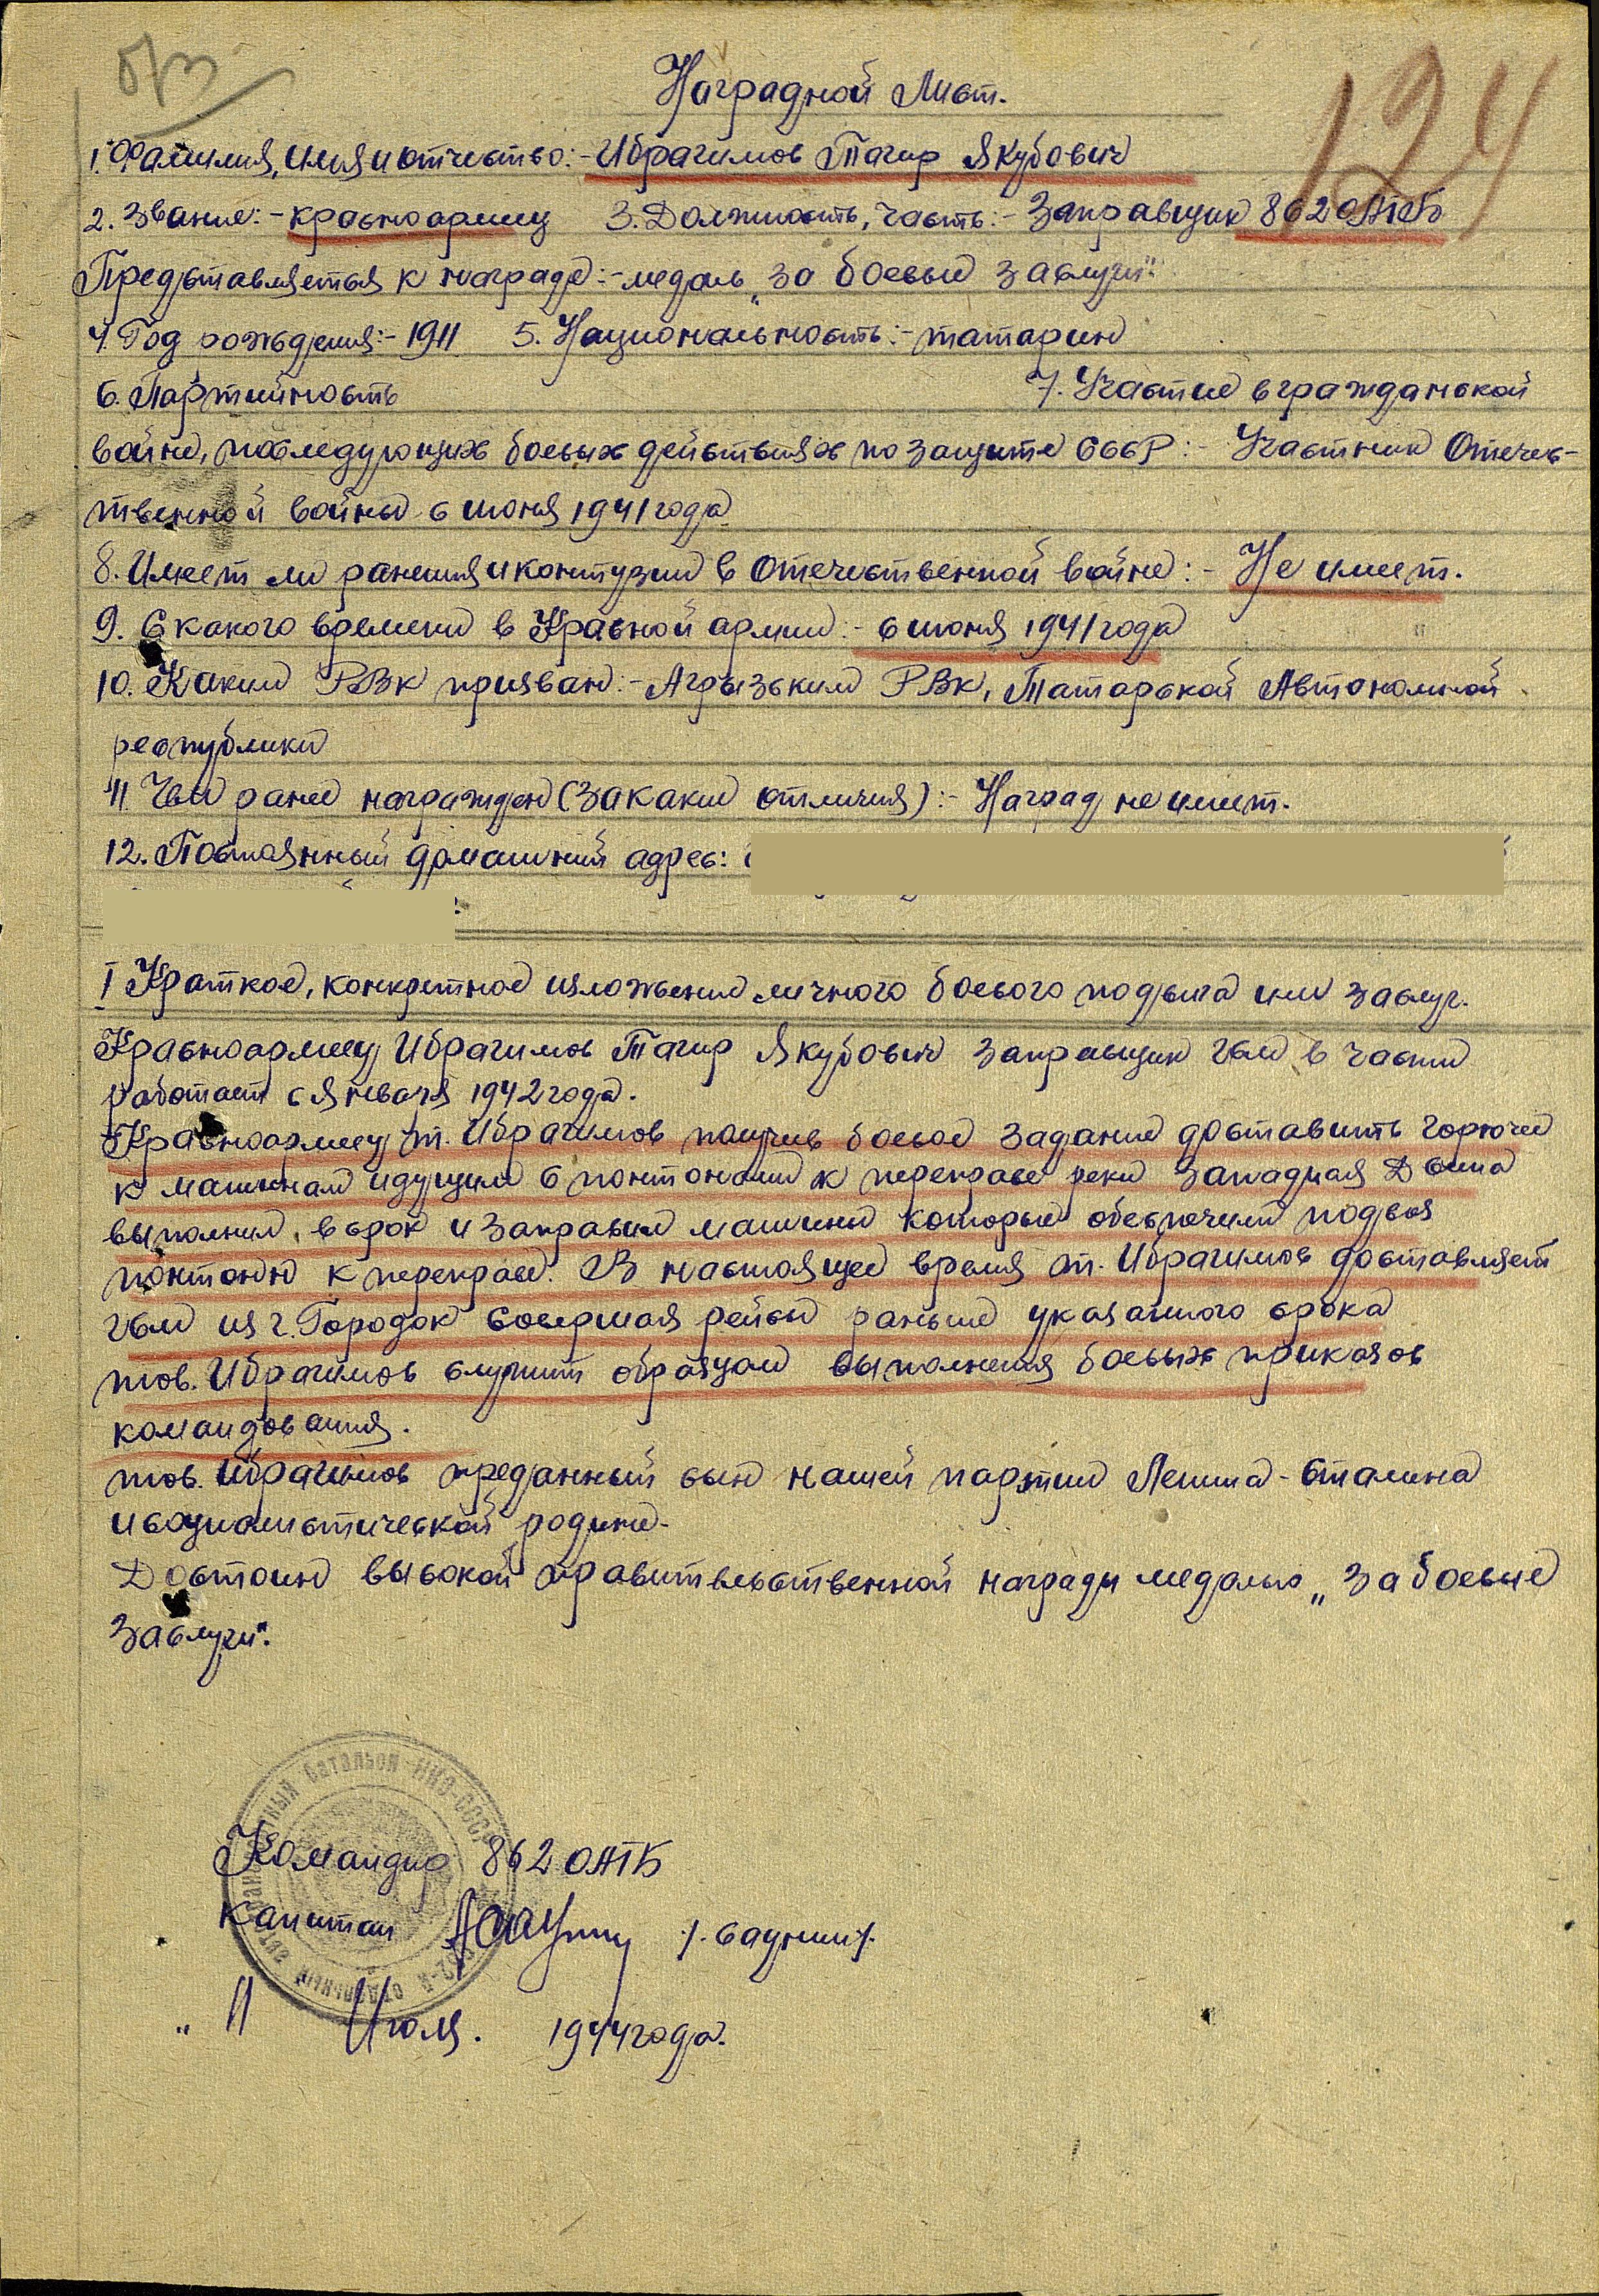 б/п
124
Наградной Лист.
1. Фамилия, имя и отчество:- Ибрагимов Тагир Якубович
2. Звание:- красноармеец 3. Должность, часть:- Заправщик 862 ОАТБ
Представляется к награде:- медаль „За боевые заслуги".
4. Год рождения:- 1911 5. Национальность:- татарин
6. Партийность 7. Участие в гражданской
войне, последующих боевых действиях по защите СССР:- Участник Отечес-
твенной войны с июня 1941 года
8. Имеет ли ранения и контузии в Отечественной войне:- Не имеет.
9. С какого времени в Красной армии:- с июня 1941 года
10. Каким РВК призван:- Агрызским РВК, Татарской Автономной
республики
11. Чем ранее награжден (за какие отличия):- Наград не имеет.
12. Постоянный домашний адрес:
I Краткое, конкретное изложение личного боевого подвига или заслуг.
Красноармеец Ибрагимов Тагир Якубович заправщик гсм в части
работает с января 1942 года.
Красноармеец т. Ибрагимов получив боевое задание доставить горючее
к машинам идущим с понтонами к переправе реки Западная Двина
выполнил в срок и заправил машины которые обеспечили подвоз
понтонн к переправе. В настоящее время т. Ибрагимов доставляет
гсм из г. Городок совершая рейсы раньше указанного срока
тов. Ибрагимов служит образцом выполнения боевых приказов
командования.
тов. Ибрагимов преданный сын нашей партии Ленина-Сталина
и социалистической родине.
Достоин высокой правительственной награды медалью „За боевые
заслуги".
Командир 862 ОАТБ
капитан /. Саунин /.
„ 11 Июля. 1944 года.
862-й отдельный автотранспортный батальон НКО-СССР